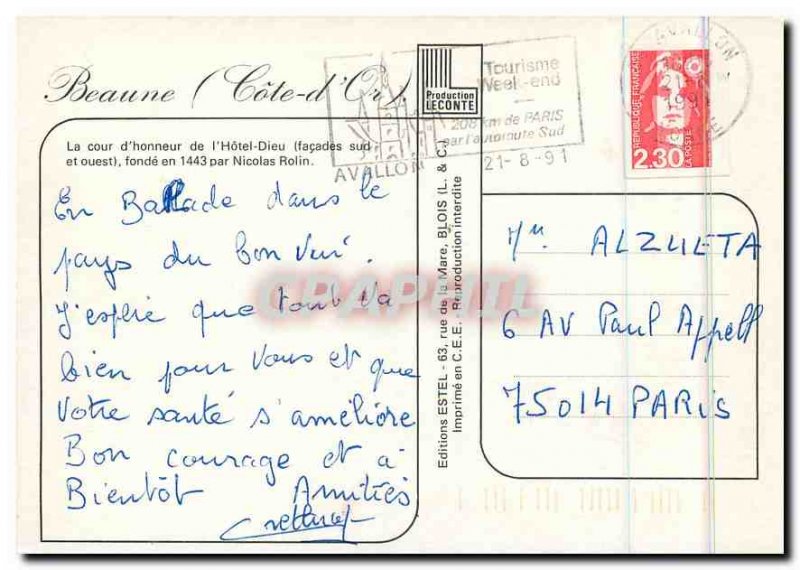 Beaune (Côte-d'Or)
La cour d'honneur de l'Hôtel-Dieu (façades sud
et ouest), fondé en 1443 par Nicolas Rolin.
En Ballade dans le
pays du bon vin.
J'espère que tout va
bien pour vous et que
votre santé s'améliore
Bon courage et à
Bientôt Amitiés
Production
LECONTE
Tourisme
Week-end
208 km de PARIS
par l'autoroute Sud
AVALLON
21-8-91
Editions ESTEL - 63, rue de la Mare, BLOIS (L. & C.)
Imprimé en C.E.E. - Reproduction interdite
AVALLON
REPUBLIQUE FRANÇAISE
2,30
LA POSTE
Mr ALZUETA
6 AV Paul Appell
75014 PARIS
CPAPHIL